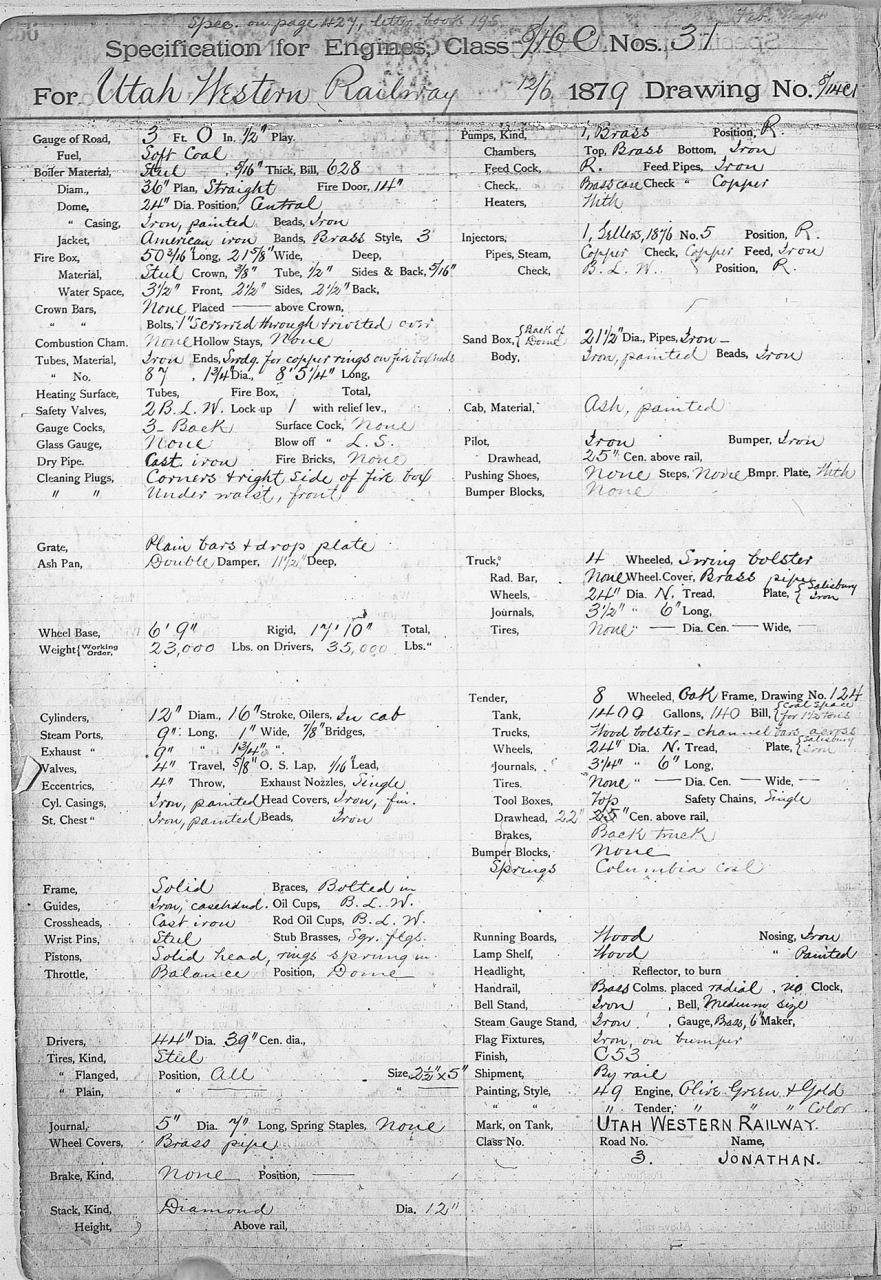 Spec. on page 427, letter book 195
Specification for Engines, Class 8/16 C Nos. 31
For Utah Western Railway 12/6 1879 Drawing No.
Gauge of Road, 3 Ft. 0 In. 1/2" Play.
Fuel, Soft Coal
Boiler Material, Steel 5/16" Thick, Bill, 628
Diam., 36" Plan, Straight Fire Door, 14"
Dome, 24" Dia. Position, Central
" Casing, Iron, painted Beads, Iron
Jacket, American iron Bands, Brass Style, 3
Fire Box, 50 3/16 Long, 21 5/8" Wide, Deep,
Material, Steel Crown, 3/8" Tube, 1/2" Sides & Back, 5/16"
Water Space, 3 1/2" Front, 2 1/2" Sides, 2 1/2" Back,
Crown Bars, None Placed — above Crown,
" " Bolts, 1" Screwed through & riveted over
Combustion Cham. None Hollow Stays, None
Tubes, Material, Iron Ends, Swdg. for copper rings on fire box ends
" No. 87 , 1 3/4" Dia., 8' 5 1/4" Long,
Heating Surface, Tubes, Fire Box, Total,
Safety Valves, 2 B. L. W. Lock up 1 with relief lev.,
Gauge Cocks, 3 - Back Surface Cock, None
Glass Gauge, None Blow off " L. S.
Dry Pipe. Cast iron Fire Bricks, None
Cleaning Plugs, Corners & right side of fire box
" " Under waist, front
Grate, Plain bars & drop plate
Ash Pan, Double Damper, 11 1/2" Deep,
Wheel Base, 6' 9" Rigid, 17' 10" Total,
Weight { Working Order, 23,000 Lbs. on Drivers, 35,000 Lbs. "
Cylinders, 12" Diam., 16" Stroke, Oilers, In cab
Steam Ports, 9" Long, 1" Wide, 7/8" Bridges,
Exhaust " 9" " 1 3/4" "
Valves, 4" Travel, 5/8" O. S. Lap, 1/16" Lead,
Eccentrics, 4" Throw, Exhaust Nozzles, Single
Cyl. Casings, Iron, painted Head Covers, Iron, fin.
St. Chest " Iron, painted Beads, Iron
Frame, Solid Braces, Bolted in
Guides, Iron, casehard. Oil Cups, B. L. W.
Crossheads, Cast iron Rod Oil Cups, B. L. W.
Wrist Pins, Steel Stub Brasses, Sqr. flgs.
Pistons, Solid head, rings sprung in.
Throttle, Balance Position, Dome
Drivers, 44" Dia. 39" Cen. dia.,
Tires, Kind, Steel
" Flanged, Position, All Size, 2 1/2" x 5"
" Plain, " "
Journal, 5" Dia. 7" Long, Spring Staples, None
Wheel Covers, Brass pipe
Brake, Kind, None Position, —
Stack, Kind, Diamond Dia. 12"
Height, Above rail,
Pumps, Kind, 1, Brass Position, R.
Chambers, Top, Brass Bottom, Iron
Feed Cock, R. Feed Pipes, Iron
Check, Brass case Check " Copper
Heaters, With
Injectors, 1, Sellers, 1876 No. 5 Position, R.
Pipes, Steam, Copper Check, Copper Feed, Iron
Check, B. L. W. Position, R.
Sand Box, { Back of Dome 21 1/2" Dia., Pipes, Iron -
Body, Iron, painted Beads, Iron
Cab, Material, Ash, painted
Pilot, Iron Bumper, Iron
Drawhead, 25" Cen. above rail,
Pushing Shoes, None Steps, None Bmpr. Plate, With
Bumper Blocks, None
Truck, 4 Wheeled, Swing bolster
Rad. Bar, None Wheel Cover, Brass pipe
Wheels, 24" Dia. N. Tread, Plate, { Salisbury Iron
Journals, 3 1/2" " 6" Long,
Tires, None " — Dia. Cen. — Wide, —
Tender, 8 Wheeled, Oak Frame, Drawing No. 124
Tank, 1400 Gallons, 140 Bill, { Coal space for 1 1/2 tons
Trucks, Wood bolster - channel bars across
Wheels, 24" Dia. N. Tread, Plate, { Salisbury Iron
Journals, 3 1/4" " 6" Long,
Tires. None " — Dia. Cen. — Wide, —
Tool Boxes, Top Safety Chains, Single
Drawhead, 22" 25" Cen. above rail,
Brakes, Back truck
Bumper Blocks, None
Springs Columbia coil
Running Boards, Wood Nosing, Iron
Lamp Shelf, Wood " Painted
Headlight, Reflector, to burn
Handrail, Brass Colms. placed radial , no Clock,
Bell Stand, Iron , Bell, Medium size
Steam Gauge Stand, Iron , Gauge, Brass, 6" Maker,
Flag Fixtures, Iron, on bumper
Finish, C53
Shipment, By rail
Painting, Style, 49 Engine, Olive Green & Gold
" " " Tender, " " " Color
Mark, on Tank, UTAH WESTERN RAILWAY.
Class No. Road No. Name,
3. JONATHAN.